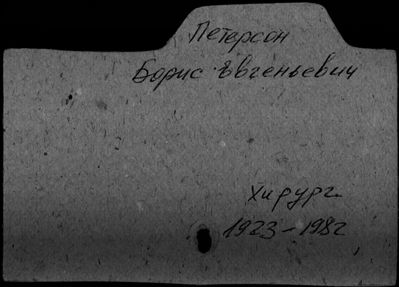 Петерсон
Борис Евгеньевич
хирург
1923-1982